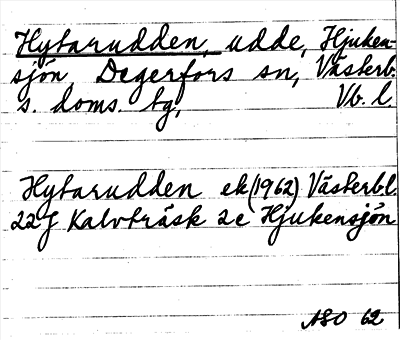 Hytarudden, udde, Hjuken-
sjön, Degerfors sn, Västerb.
s. doms. bg, Vb. l.
Hytarudden ek (1962) Västerb.l.
22J Kalvträsk 2c Hjukensjön
ASO 62